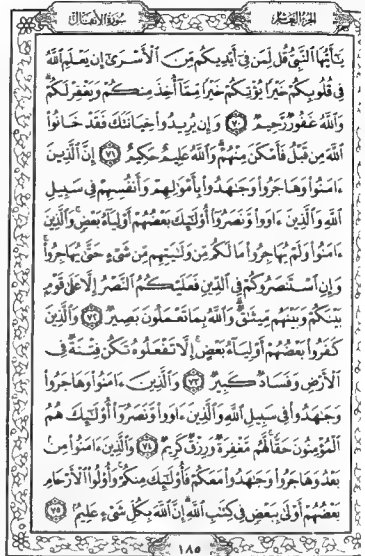 الجزء العاشر
سورة الأنفال
يَٰٓأَيُّهَا ٱلنَّبِىُّ قُل لِّمَن فِىٓ أَيْدِيكُم مِّنَ ٱلْأَسْرَىٰٓ إِن يَعْلَمِ ٱللَّهُ
فِى قُلُوبِكُمْ خَيْرًا يُؤْتِكُمْ خَيْرًا مِّمَّآ أُخِذَ مِنكُمْ وَيَغْفِرْ لَكُمْ
وَٱللَّهُ غَفُورٌ رَّحِيمٌ ٧٠ وَإِن يُرِيدُوا۟ خِيَانَتَكَ فَقَدْ خَانُوا۟
ٱللَّهَ مِن قَبْلُ فَأَمْكَنَ مِنْهُمْ وَٱللَّهُ عَلِيمٌ حَكِيمٌ ٧١ إِنَّ ٱلَّذِينَ
ءَامَنُوا۟ وَهَاجَرُوا۟ وَجَٰهَدُوا۟ بِأَمْوَٰلِهِمْ وَأَنفُسِهِمْ فِى سَبِيلِ
ٱللَّهِ وَٱلَّذِينَ ءَاوَوا۟ وَّنَصَرُوٓا۟ أُو۟لَٰٓئِكَ بَعْضُهُمْ أَوْلِيَآءُ بَعْضٍ وَٱلَّذِينَ
ءَامَنُوا۟ وَلَمْ يُهَاجِرُوا۟ مَا لَكُم مِّن وَلَٰيَتِهِم مِّن شَىْءٍ حَتَّىٰ يُهَاجِرُوا۟
وَإِنِ ٱسْتَنصَرُوكُمْ فِى ٱلدِّينِ فَعَلَيْكُمُ ٱلنَّصْرُ إِلَّا عَلَىٰ قَوْمٍۭ
بَيْنَكُمْ وَبَيْنَهُم مِّيثَٰقٌ وَٱللَّهُ بِمَا تَعْمَلُونَ بَصِيرٌ ٧٢ وَٱلَّذِينَ
كَفَرُوا۟ بَعْضُهُمْ أَوْلِيَآءُ بَعْضٍ إِلَّا تَفْعَلُوهُ تَكُن فِتْنَةٌ فِى
ٱلْأَرْضِ وَفَسَادٌ كَبِيرٌ ٧٣ وَٱلَّذِينَ ءَامَنُوا۟ وَهَاجَرُوا۟
وَجَٰهَدُوا۟ فِى سَبِيلِ ٱللَّهِ وَٱلَّذِينَ ءَاوَوا۟ وَّنَصَرُوٓا۟ أُو۟لَٰٓئِكَ هُمُ
ٱلْمُؤْمِنُونَ حَقًّا لَّهُم مَّغْفِرَةٌ وَرِزْقٌ كَرِيمٌ ٧٤ وَٱلَّذِينَ ءَامَنُوا۟ مِنۢ
بَعْدُ وَهَاجَرُوا۟ وَجَٰهَدُوا۟ مَعَكُمْ فَأُو۟لَٰٓئِكَ مِنكُمْ وَأُو۟لُوا۟ ٱلْأَرْحَامِ
بَعْضُهُمْ أَوْلَىٰ بِبَعْضٍ فِى كِتَٰبِ ٱللَّهِ إِنَّ ٱللَّهَ بِكُلِّ شَىْءٍ عَلِيمٌ ٧٥
١٨٥